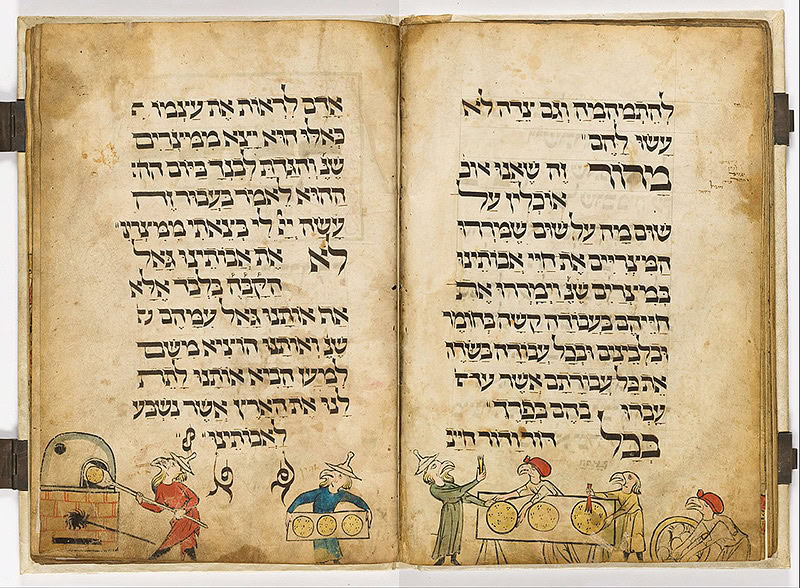 להתמהמה וגם צדה לא
עשו להם
מרור זה שאנו אוכ
אוכלין על
שום מה על שום שמררו
המצריים את חיי אבותינו
במצרים שנ׳ וימררו את
חייהם בעבודה קשה בחומר
ובלבנים ובכל עבודה בשדה
את כל עבודתם אשר
עבדו בהם בפרך
בכל דור ודור חייב
אדם לראות את עצמו
כאלו הוא יצא ממצרים
שנ׳ והגדת לבנך ביום הה
ההוא לאמר בעבור זה
עשה יי לי בצאתי ממצרים
לא את אבותינו גאל
הקבה בלבד אלא
אף אותנו גאל עמהם
שנ׳ ואותנו הוציא משם
למען הביא אותנו לתת
לנו את הארץ אשר נשבע
לאבותינו